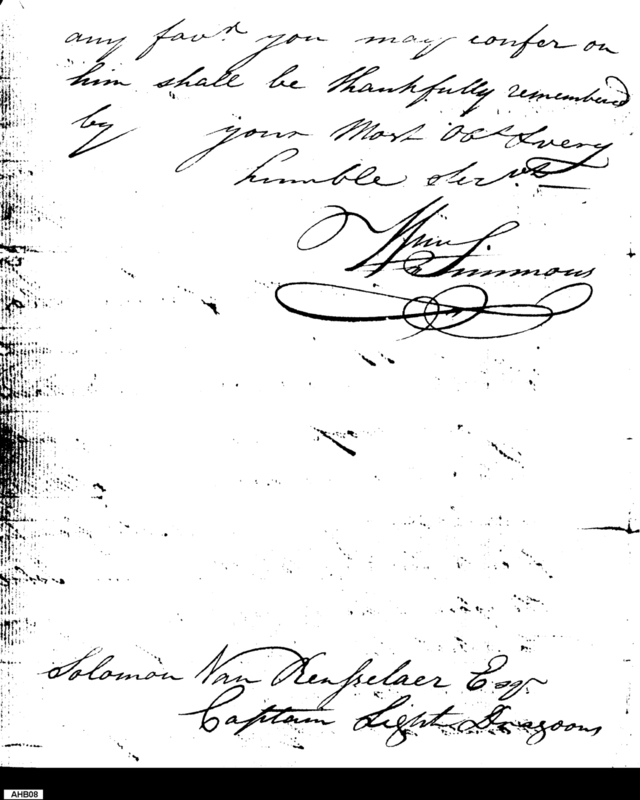 any favr you may confer on
him shall be thankfully remembered
by your Most Obt & very
humble Servt
Wm Simmons
Solomon Van Rensselaer Esqr
Captain Light Dragoons
AHB08